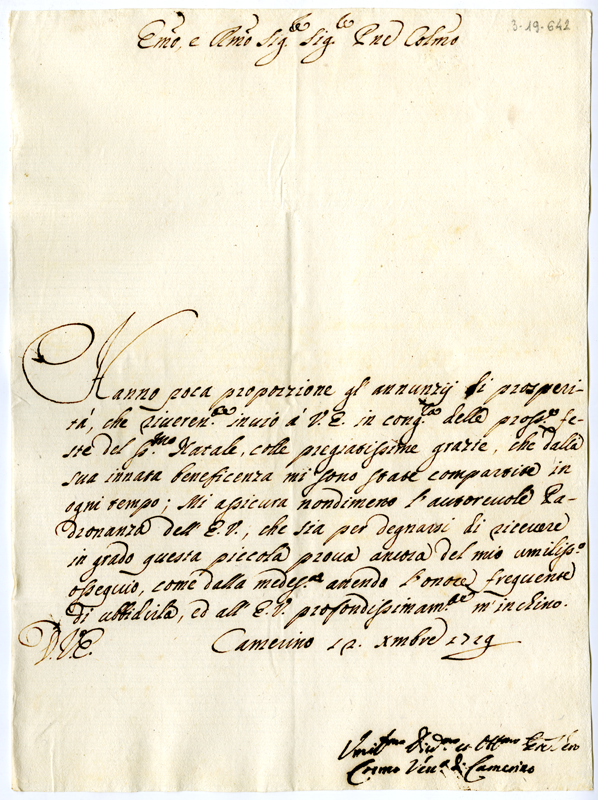 3-19-642
Emo, e Rmo Sig.re Sig.re Pne Colmo
Hanno poca proporzione gl'annunzij di prosperi-
tà, che riveren.te invio à V.E. in cong.ra delle pross.e fe-
ste del S.mo Natale, colle pregiatissime grazie, che dalla
sua innata beneficenza mi sono state compartite in
ogni tempo; Mi assicura nondimeno l'autorevole Pa-
dronanza dell'E.V., che sia per degnarsi di ricevere
in grado questa piccola prova ancora del mio umiliss.o
ossequio, come dalla medes.a attendo l'onore frequente
di ubbidirla, ed all'E.V. profondissimam.te m'inchino.
D.V.E. Camerino 12. Xmbre 1719
Umil.mo Div.mo et Obb.mo
Cosmo Vesc.o di Camerino